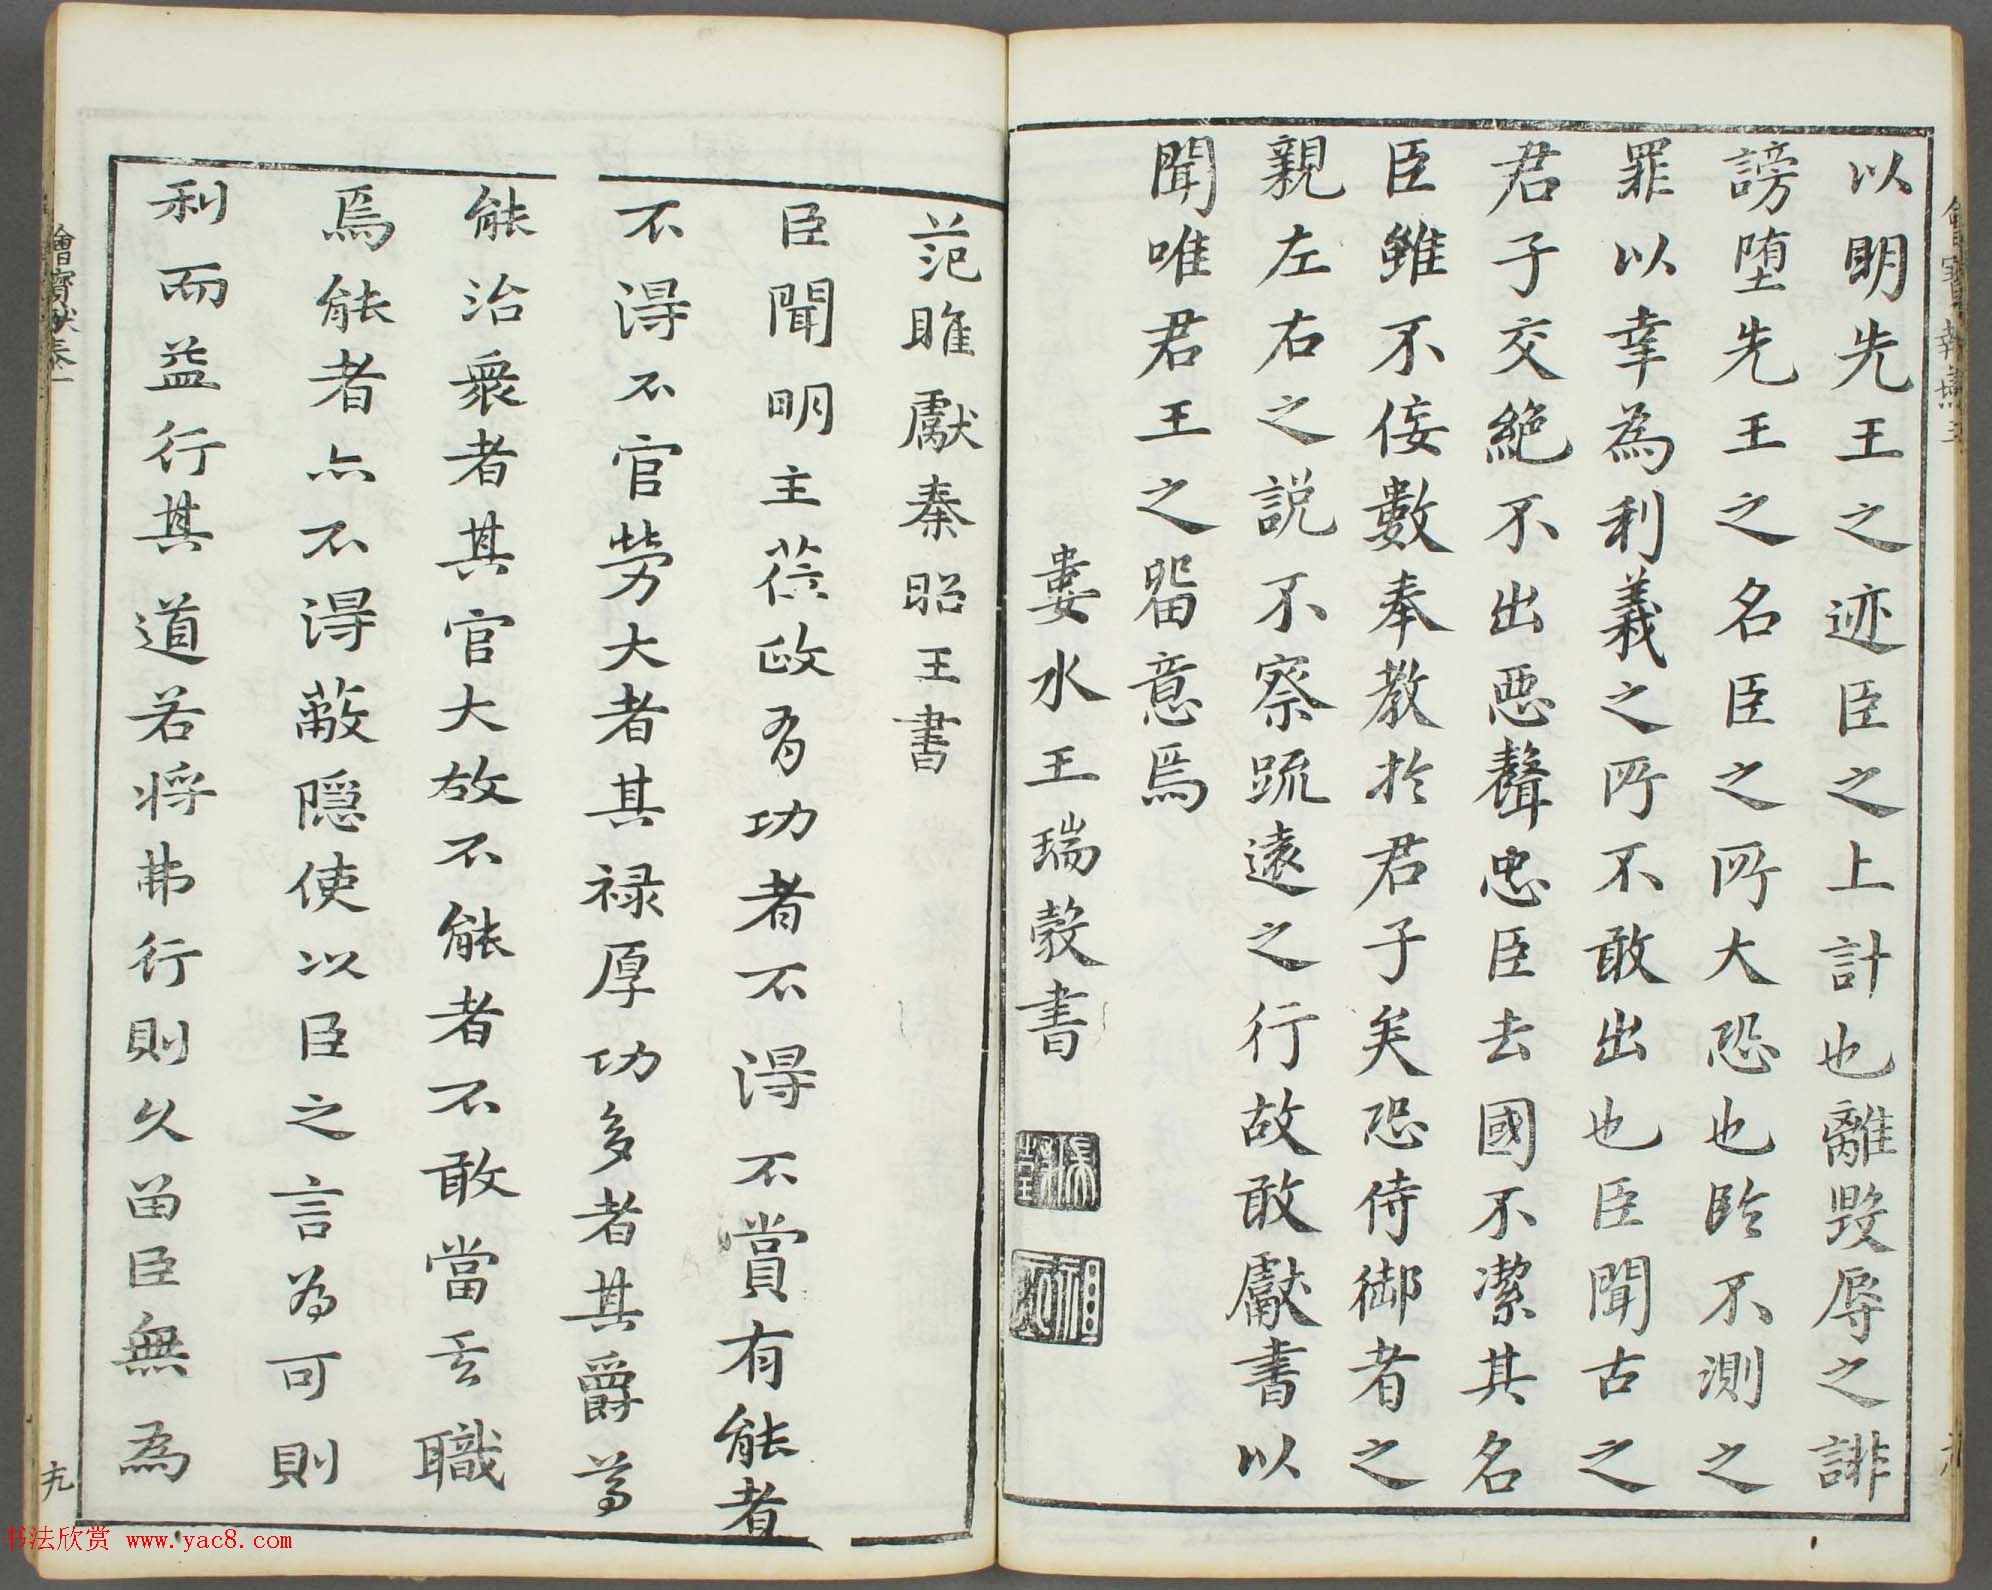 以明先王之迹臣之上計也離毀辱之誹
謗堕先王之名臣之所大恐也臨不測之
罪以幸為利義之所不敢出也臣聞古之
君子交絶不出悪聲忠臣去國不潔其名
臣雖不佞數奉教於君子矣恐侍御者之
親左右之説不察疏遠之行故敢獻書以
聞唯君王之畱意焉
婁水王瑞穀書
范睢獻秦昭王書
臣聞明主莅政有功者不得不賞有能者
不得不官勞大者其禄厚功多者其爵尊
能治衆者其官大故不能者不敢當其職
焉能者亦不得蔽隠使以臣之言為可則
利而益行其道若将弗行則久留臣無為
十九
书法欣赏 www.yac8.com